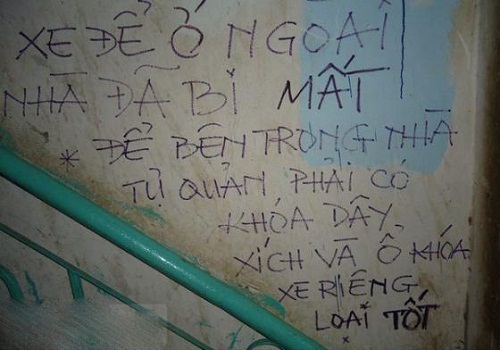 XE ĐỂ Ở NGOÀI
NHÀ ĐÃ BỊ MẤT
* ĐỂ BÊN TRONG NHÀ
TỰ QUẢN PHẢI CÓ
KHÓA DÂY
XÍCH VÀ Ổ KHÓA
XE RIÊNG
LOẠI TỐT